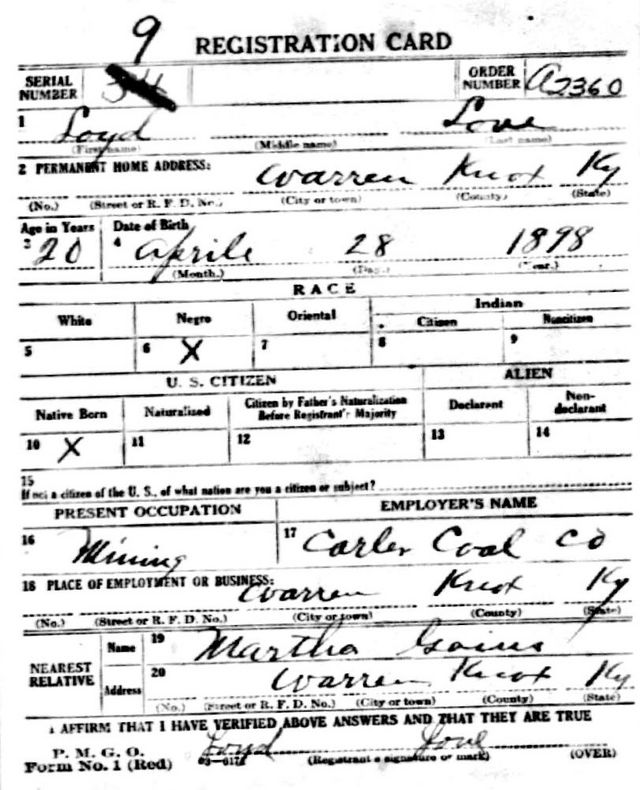 9 REGISTRATION CARD
SERIAL NUMBER ORDER NUMBER A2360
1 Loyd Love
(First name) (Middle name) (Last name)
2 PERMANENT HOME ADDRESS: Warren Knox Ky
(No.) (Street or R. F. D. No.) (City or town) (County) (State)
Age in Years Date of Birth
3 20 4 Aprile 28 1898
(Month.) (Day.) (Year.)
RACE
White Negro Oriental Indian
Citizen Noncitizen
5 6 X 7 8 9
U. S. CITIZEN ALIEN
Native Born Naturalized Citizen by Father's Naturalization Before Registrant's Majority Declarant Non-declarant
10 X 11 12 13 14
15
If not a citizen of the U. S., of what nation are you a citizen or subject?
PRESENT OCCUPATION EMPLOYER'S NAME
16 Mining 17 Carler Coal Co
18 PLACE OF EMPLOYMENT OR BUSINESS: Warren Knox Ky
(No.) (Street or R. F. D. No.) (City or town) (County) (State)
NEAREST RELATIVE Name 19 Martha Goins
Address 20 Warren Knox Ky
(No.) (Street or R. F. D. No.) (City or town) (County) (State)
I AFFIRM THAT I HAVE VERIFIED ABOVE ANSWERS AND THAT THEY ARE TRUE
P. M. G. O. Loyd Love
Form No. 1 (Red) (Registrant's signature or mark) (OVER)